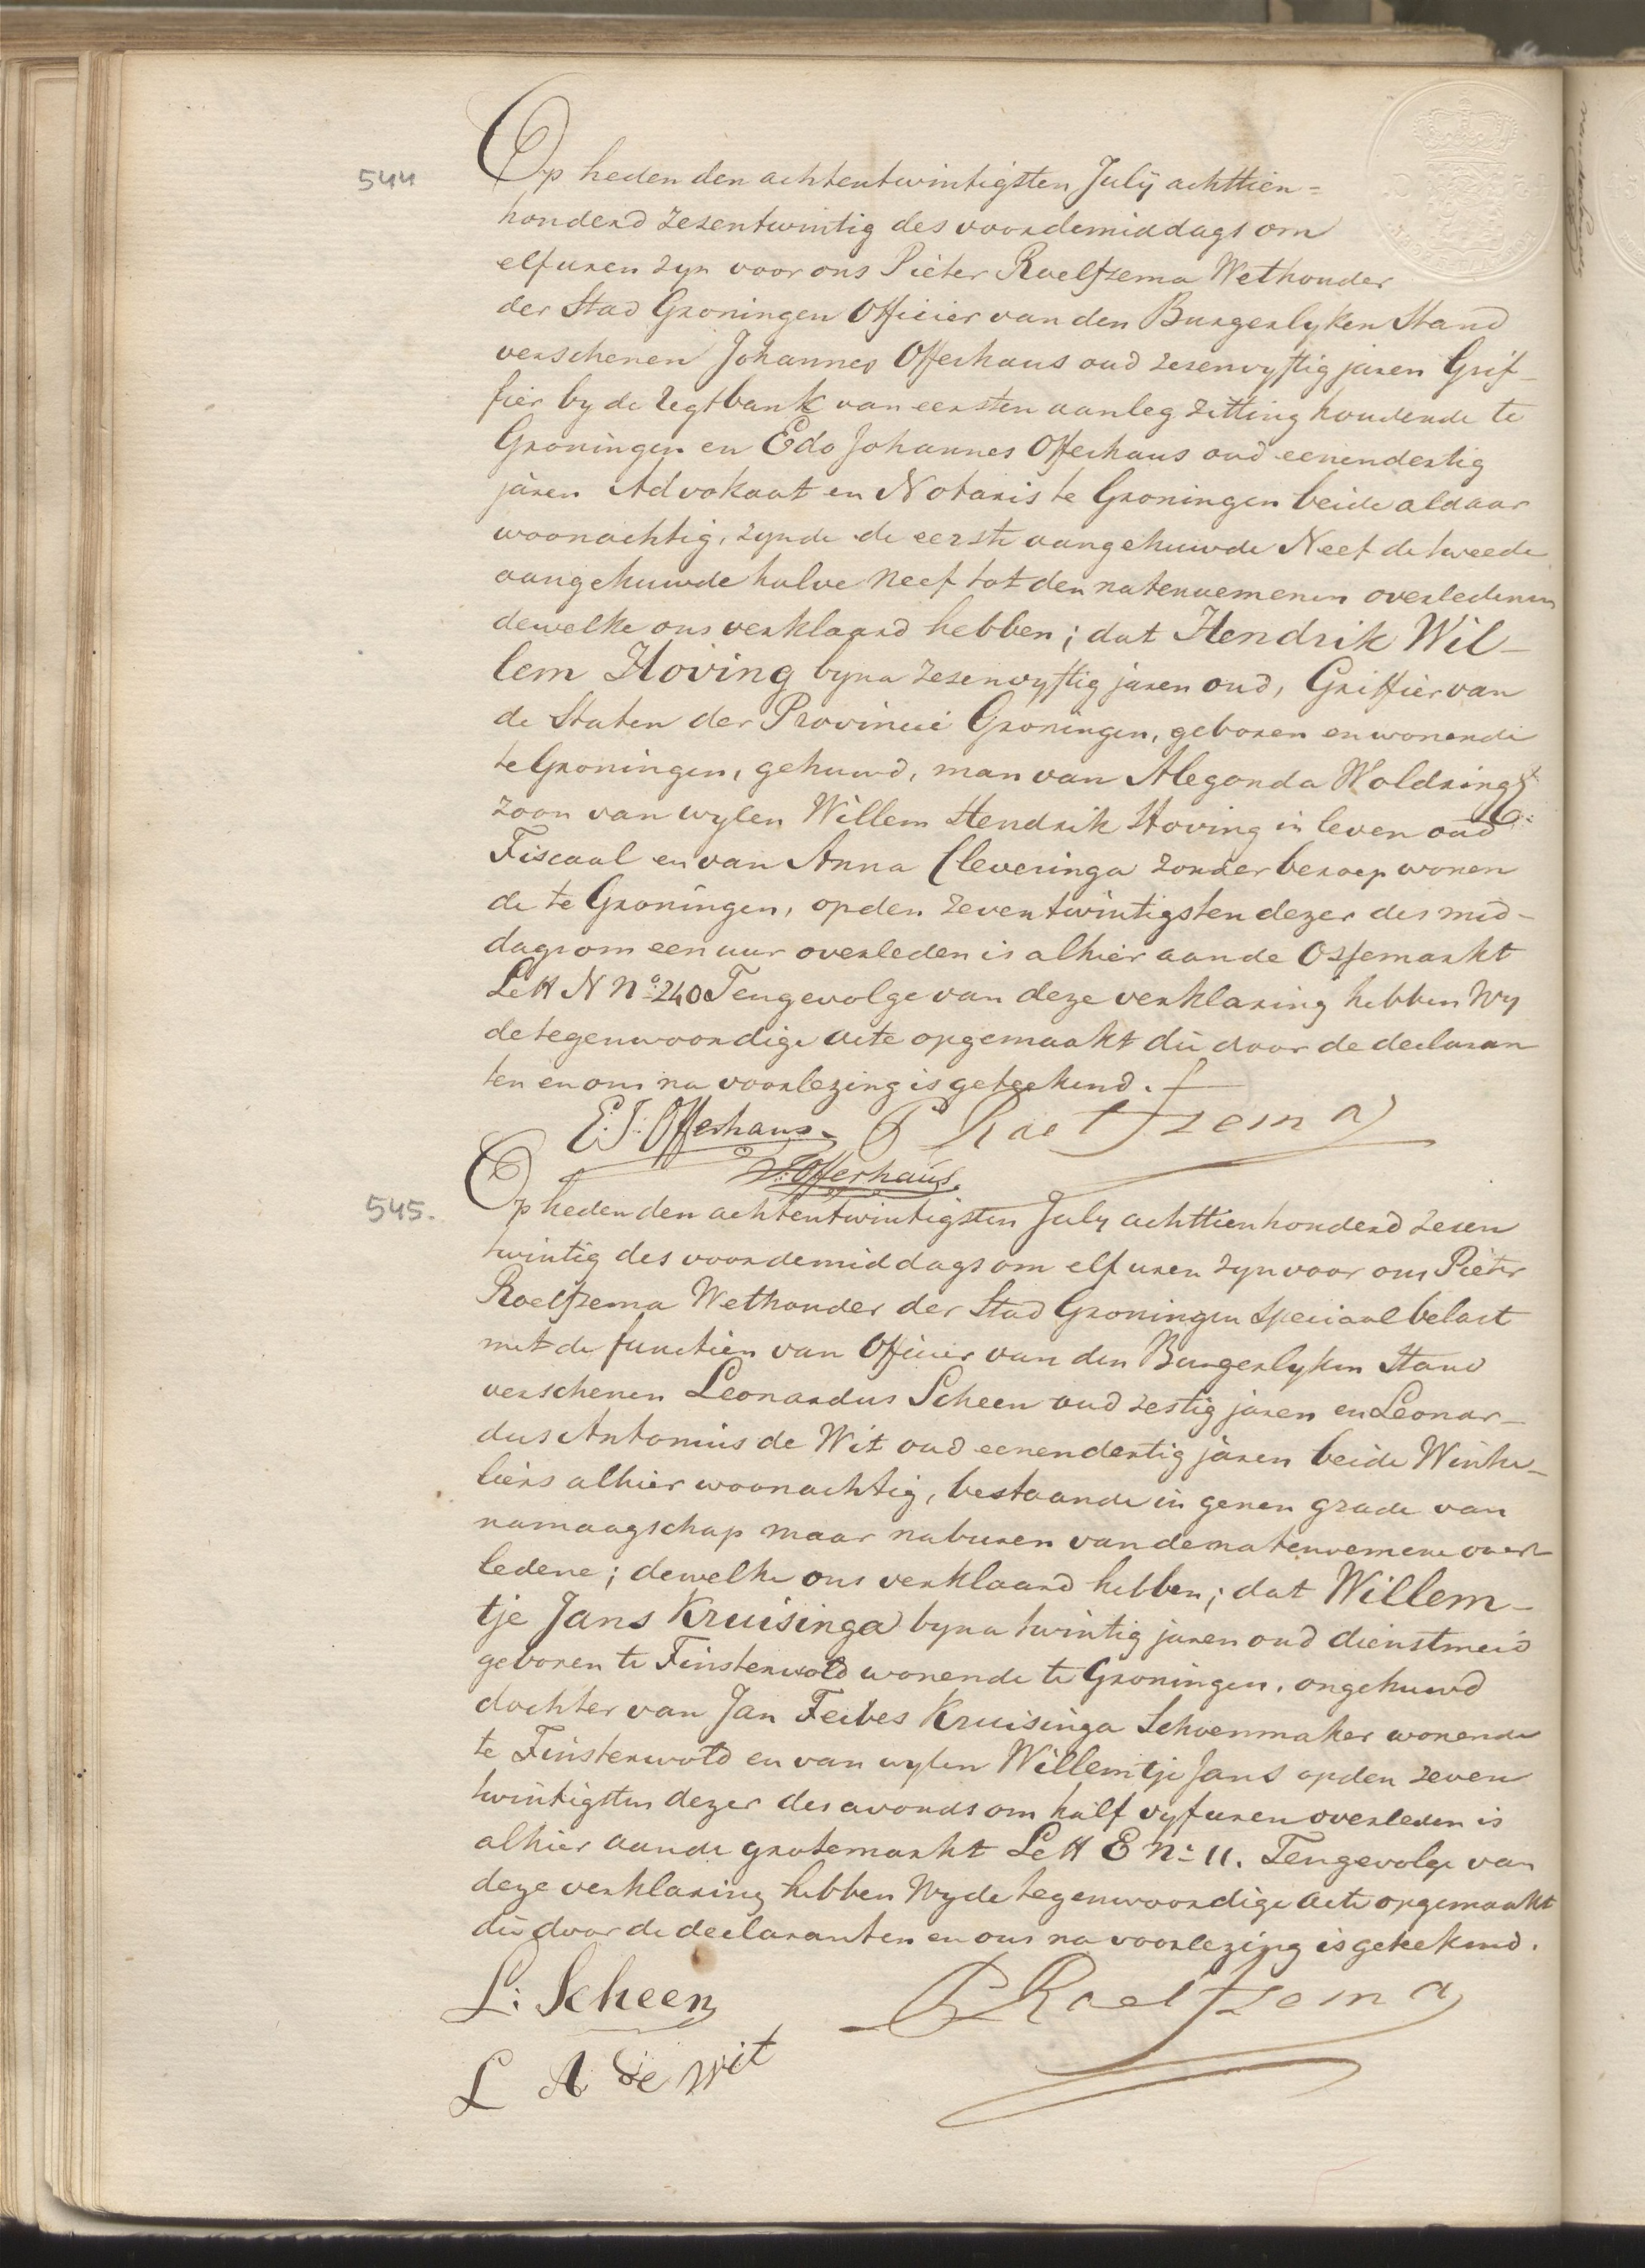 544
Op heden den achtentwintigsten Julij achttien=
honderd zesentwintig des voordemiddags om
elf uren zyn voor ons Pieter Roelfzema Wethouder
der Stad Groningen Officier van den Burgerlyken Stand
verschenen Johannes Offerhaus oud zesenvyftig jaren Grif-
fier by de regtbank van eersten aanleg zitting houdende te
Groningen en Edo Johannes Offerhaus oud eenendertig
jaren Advokaat en Notaris te Groningen beide aldaar
woonachtig, zynde de eerste aangehuwde Neef de tweede
aangehuwde halve neef tot den natenoemenen overledenen
dewelke ons verklaard hebben; dat Hendrik Wil-
lem Hoving byna zesenvyftig jaren oud, Griffier van
de Staten der Provincie Groningen, geboren en wonende
te Groningen, gehuwd, man van Alegonda Woldringh
zoon van wylen Willem Hendrik Hoving in leven oud
Fiscaal en van Anna Cleveringa zonder beroep wonen
de te Groningen, op den zeventwintigsten dezer des mid-
dags om een uur overleden is alhier aan de Ossemarkt
Lett N No 240 Tengevolge van deze verklaring hebben Wy
de tegenwoordige acte opgemaakt die door de declaran
ten en ons na voorlezing is geteekend.
E. J. Offerhaus P Roelfzema
J. Offerhaus
545.
Op heden den achtentwintigsten July achttienhonderd zesen
twintig des voordemiddags om elf uren zyn voor ons Pieter
Roelfzema Wethouder der Stad Groningen speciaal belast
met de functien van Officier van den Burgerlyken Stand
verschenen Leonardus Scheen oud zestig jaren en Leonar-
dus Antonius de Wit oud eenendertig jaren beide Winke-
liers alhier woonachtig, bestaande in genen grade van
namaagschap maar naburen van de natenoemene over-
ledene; dewelke ons verklaard hebben; dat Willem-
tje Jans Kruisinga byna twintig jaren oud dienstmeid
geboren te Finsterwold wonende te Groningen, ongehuwd
dochter van Jan Feibes Kruisinga Schoenmaker wonende
te Finsterwold en van wylen Willemtje Jans op den zeven
twintigsten dezer des avonds om half vyf uren overleden is
alhier aan de grotemarkt Lett E No 11. Tengevolge van
deze verklaring hebben Wy de tegenwoordige acte opgemaakt
die door de declaranten en ons na voorlezing is geteekend.
L: Scheen P Roelfzema
L A de Wit